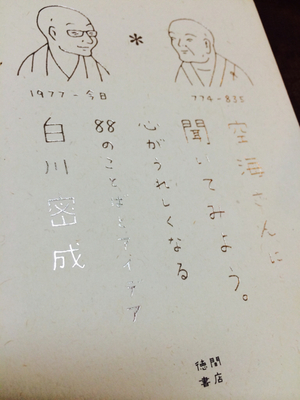 1977-今日
774-835
空海さんに
聞いてみよう。
心がうれしくなる
88のことばとアイデア
白川密成
徳間
書店